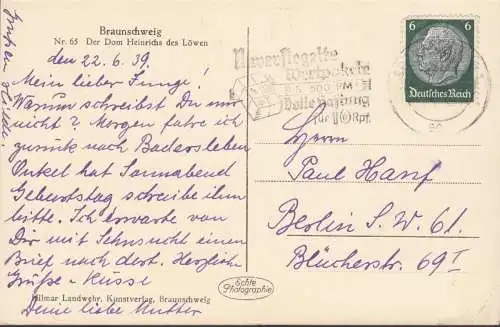 Braunschweig
Nr. 65 Der Dom Heinrichs des Löwen
den 22.6.39.
Mein lieber Junge!
Warum schreibst Du mir
nicht? Morgen fahre ich
zurück nach Badersleben
Onkel hat Sonnabend
Geburtstag schreibe ihm
bitte. Ich erwarte von
Dir mit Sehnsucht einen
Brief nach dort. Herzliche
Grüße - Küsse
Deine liebe Mutter
Hilmar Landwehr, Kunstverlag, Braunschweig
Echte
Photographie
Unversiegelte
Wertpakete
bis 500 RM
für 10 Rpf.
6 6
Deutsches Reich
Herrn
Paul Hanf
Berlin S.W. 61.
Blücherstr. 69 I